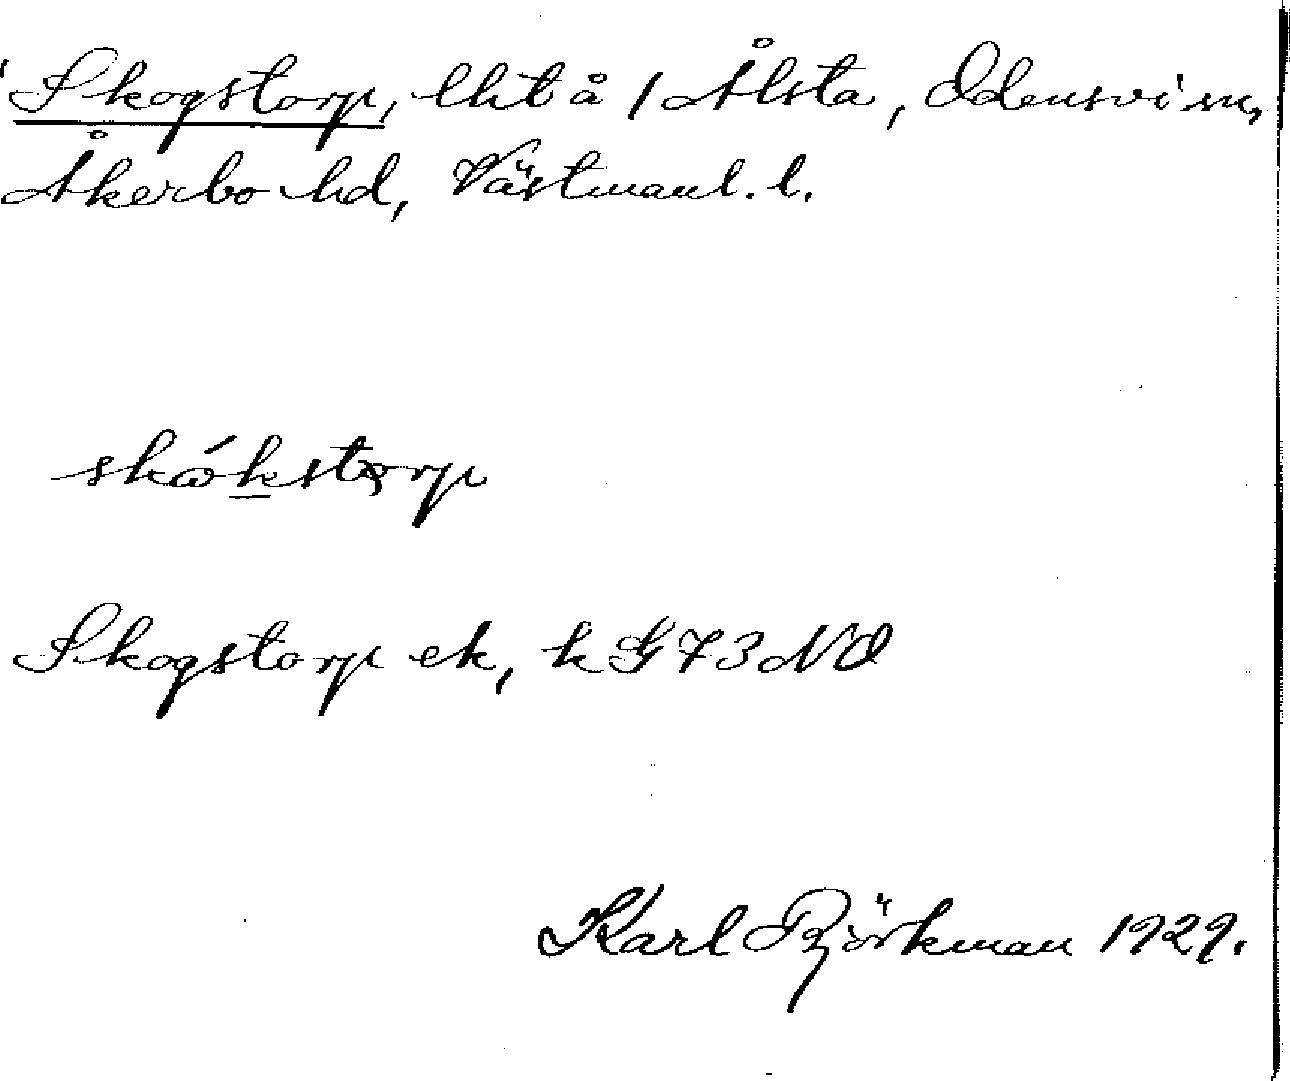 Skogstorp, lht å 1 Ålsta, Odensvi sn,
Åkerbo hd, Västmanl. l.
skókstorp
Skogstorp ek, k G 73 NO
Karl Björkman 1929.